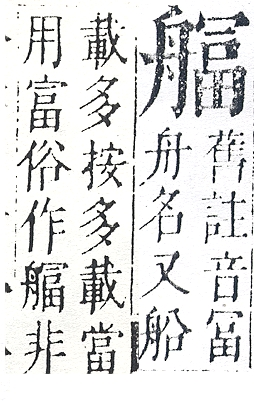 䑧
舊註音冨
舟名又船
載多按多載當
用富俗作䑧非